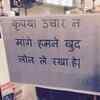 कृपया उधार न
मांगे हमने खुद
लोन ले रखा है।